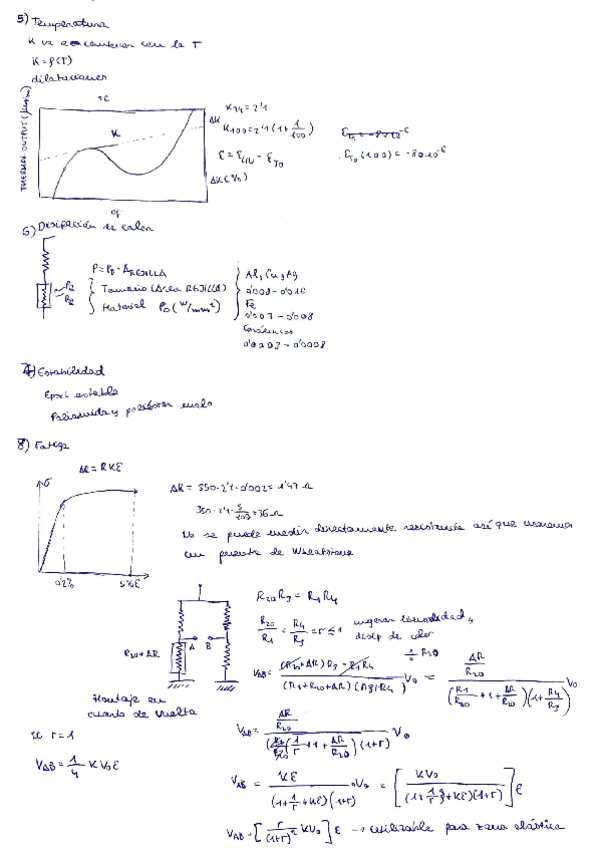 5) Temperatura
K va a cambiar con la T
K = f(T)
dilataciones
°C
THERMAL OUTPUT (µm/m)
K
ΔK
ΔK(%)
°F
K24 = 2'1
K100 = 2'1 (1 + 1/100)
ε = εLIU - εTO
εTO (100) = -80·10^-6
6) Disipación de calor
P = PD · AREJILLA
Tamaño (Area REJILLA)
Material PD (W/mm²)
Al, Cu, Ag
0'008 - 0'016
Fe
0'003 - 0'008
Cerámicos
0'0003 - 0'0008
7) Estabilidad
Epoxi estable
Poliamida y poliéster malo
8) Fatiga
ΔR = RKε
σ
0'2%
5% ε
ΔR = 350 · 2'1 · 0'002 = 1'47 Ω
350 · 2'1 · 5/100 = 36 Ω
No se puede medir directamente resistencia así que usaremos
un puente de Wheatstone
R20 + ΔR
A B
Montaje en
cuarto de vuelta
R20 R3 = R1 R4
R20/R1 = R4/R3 = r ≤ 1
mejorar linealidad y
disip de calor
VAB = (R20 + ΔR) R3 - R1 R4 / (R1 + R20 + ΔR) (R3 + R4) V0 = ΔR/R20 / (R1/R20 + 1 + ΔR/R20)(1 + R4/R3) V0
VAB = ΔR/R20 / (1/r + 1 + ΔR/R20)(1+r) V0
si r = 1
VAB = 1/4 K V0 ε
VAB = Kε / (1 + 1/r + Kε)(1+r) · V0 = [KV0 / (1 + 1/r + Kε)(1+r)] ε
VAB = [r/(1+r)² KV0] ε → utilizable para zona elástica